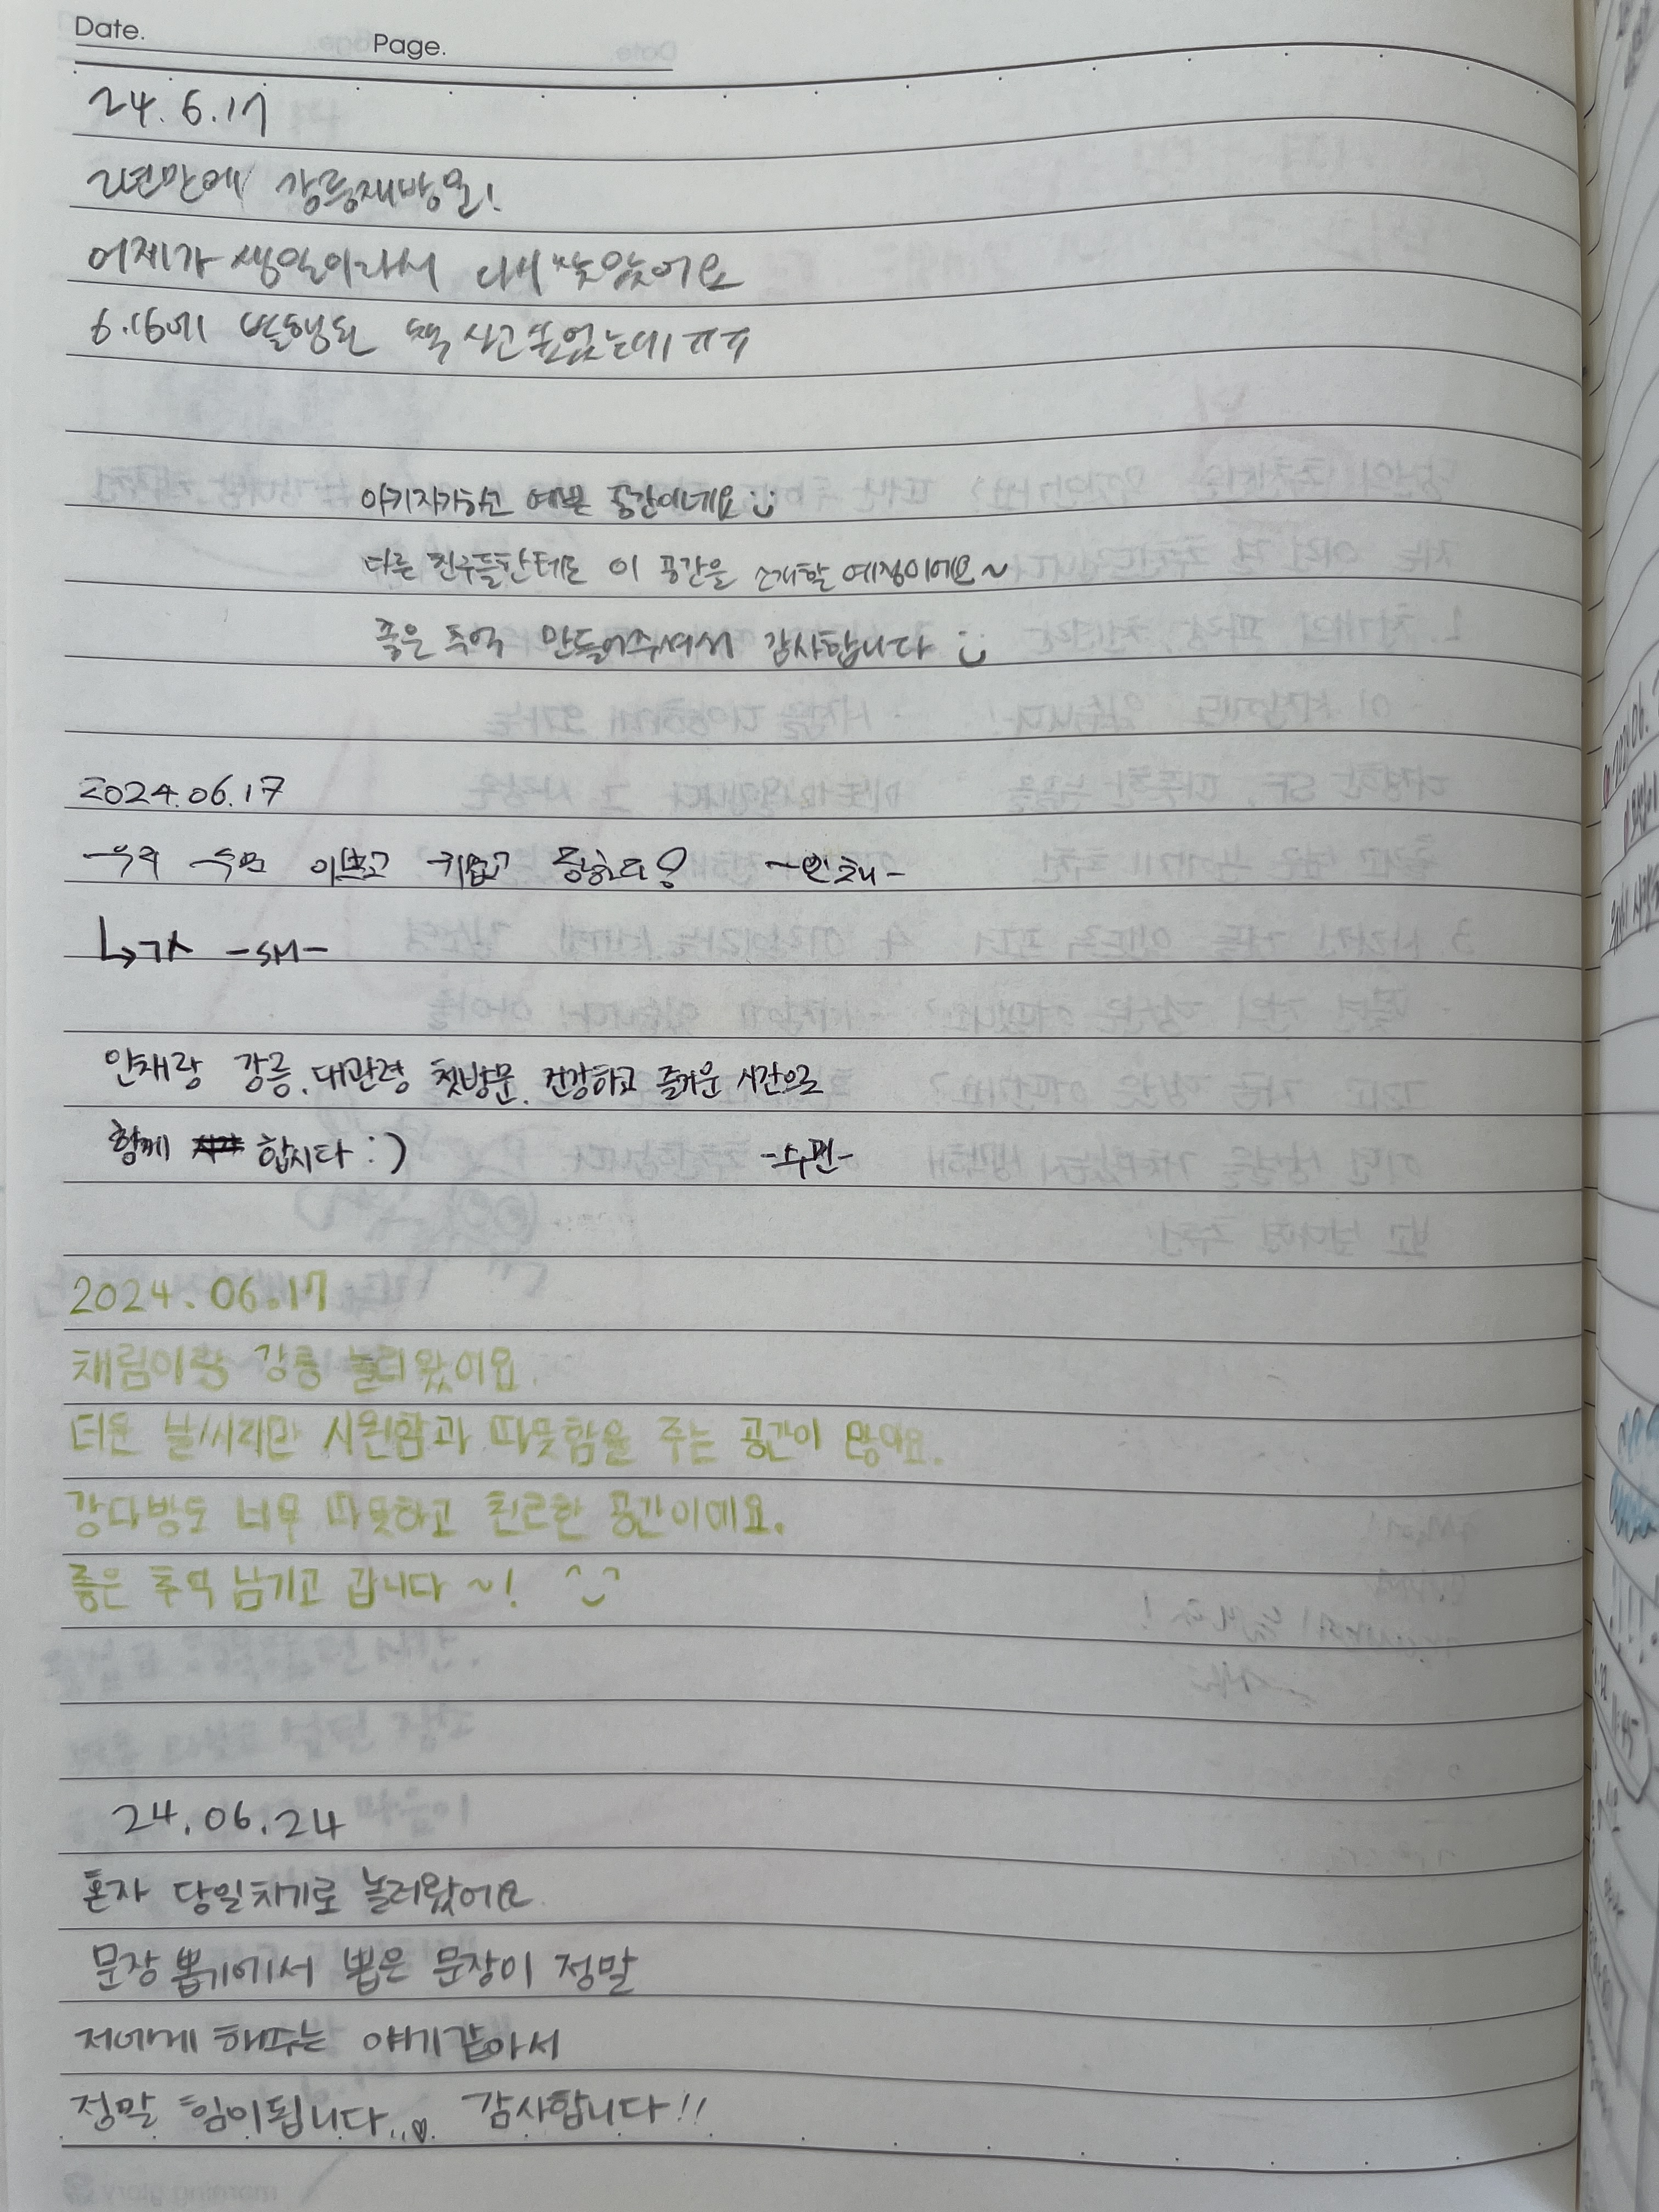 Date.
Page.
24.6.17
2년만에 강릉재방문!
어제가 생일이라서 다시 찾았어요
6.16에 발행된 책 사고싶었는데 ㅠㅠ
아기자기하고 예쁜 공간이네요 :)
다른 친구들한테도 이 공간을 소개할 예정이에요~
좋은 추억 만들어주셔서 감사합니다 :)
2024.06.17
우리 수민 이쁘고 귀엽고 착하다! -인채-
↳가 -SM-
인채랑 강릉, 대관령 첫방문, 건강하고 즐거운 시간으로
함께 합시다 :) -수민-
2024.06.17
채림이랑 강릉 놀러왔어요
더운 날씨지만 시원함과 따뜻함을 주는 공간이 많아요.
강다방도 너무 따뜻하고 친근한 공간이에요.
좋은 추억 남기고 갑니다 ~!
24.06.24
혼자 당일치기로 놀러왔어요
문장 뽑기에서 뽑은 문장이 정말
저에게 해주는 얘기같아서
정말 힘이됩니다..♡ 감사합니다!!